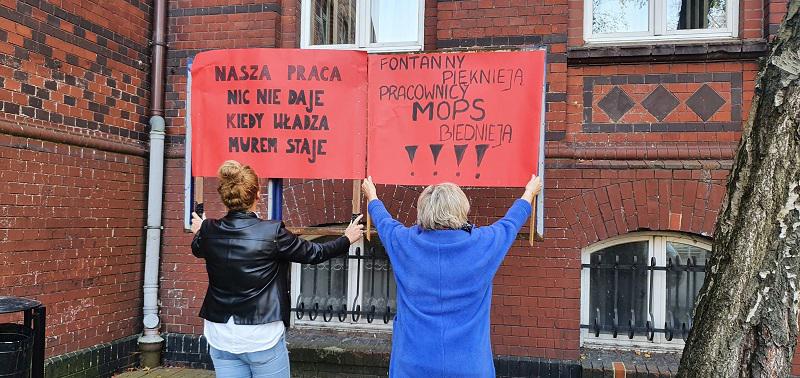 NASZA PRACA
NIC NIE DAJE
KIEDY WŁADZA
MUREM STAJE
FONTANNY
PIĘKNIEJĄ
PRACOWNICY
MOPS
BIEDNIEJĄ
!!!!